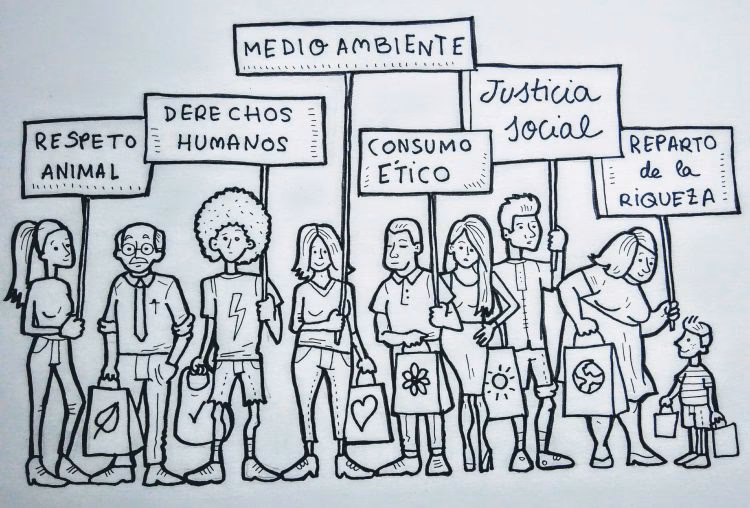 RESPETO
ANIMAL
DERECHOS
HUMANOS
MEDIO AMBIENTE
CONSUMO
ÉTICO
Justicia
social
REPARTO
de la
RIQUEZA